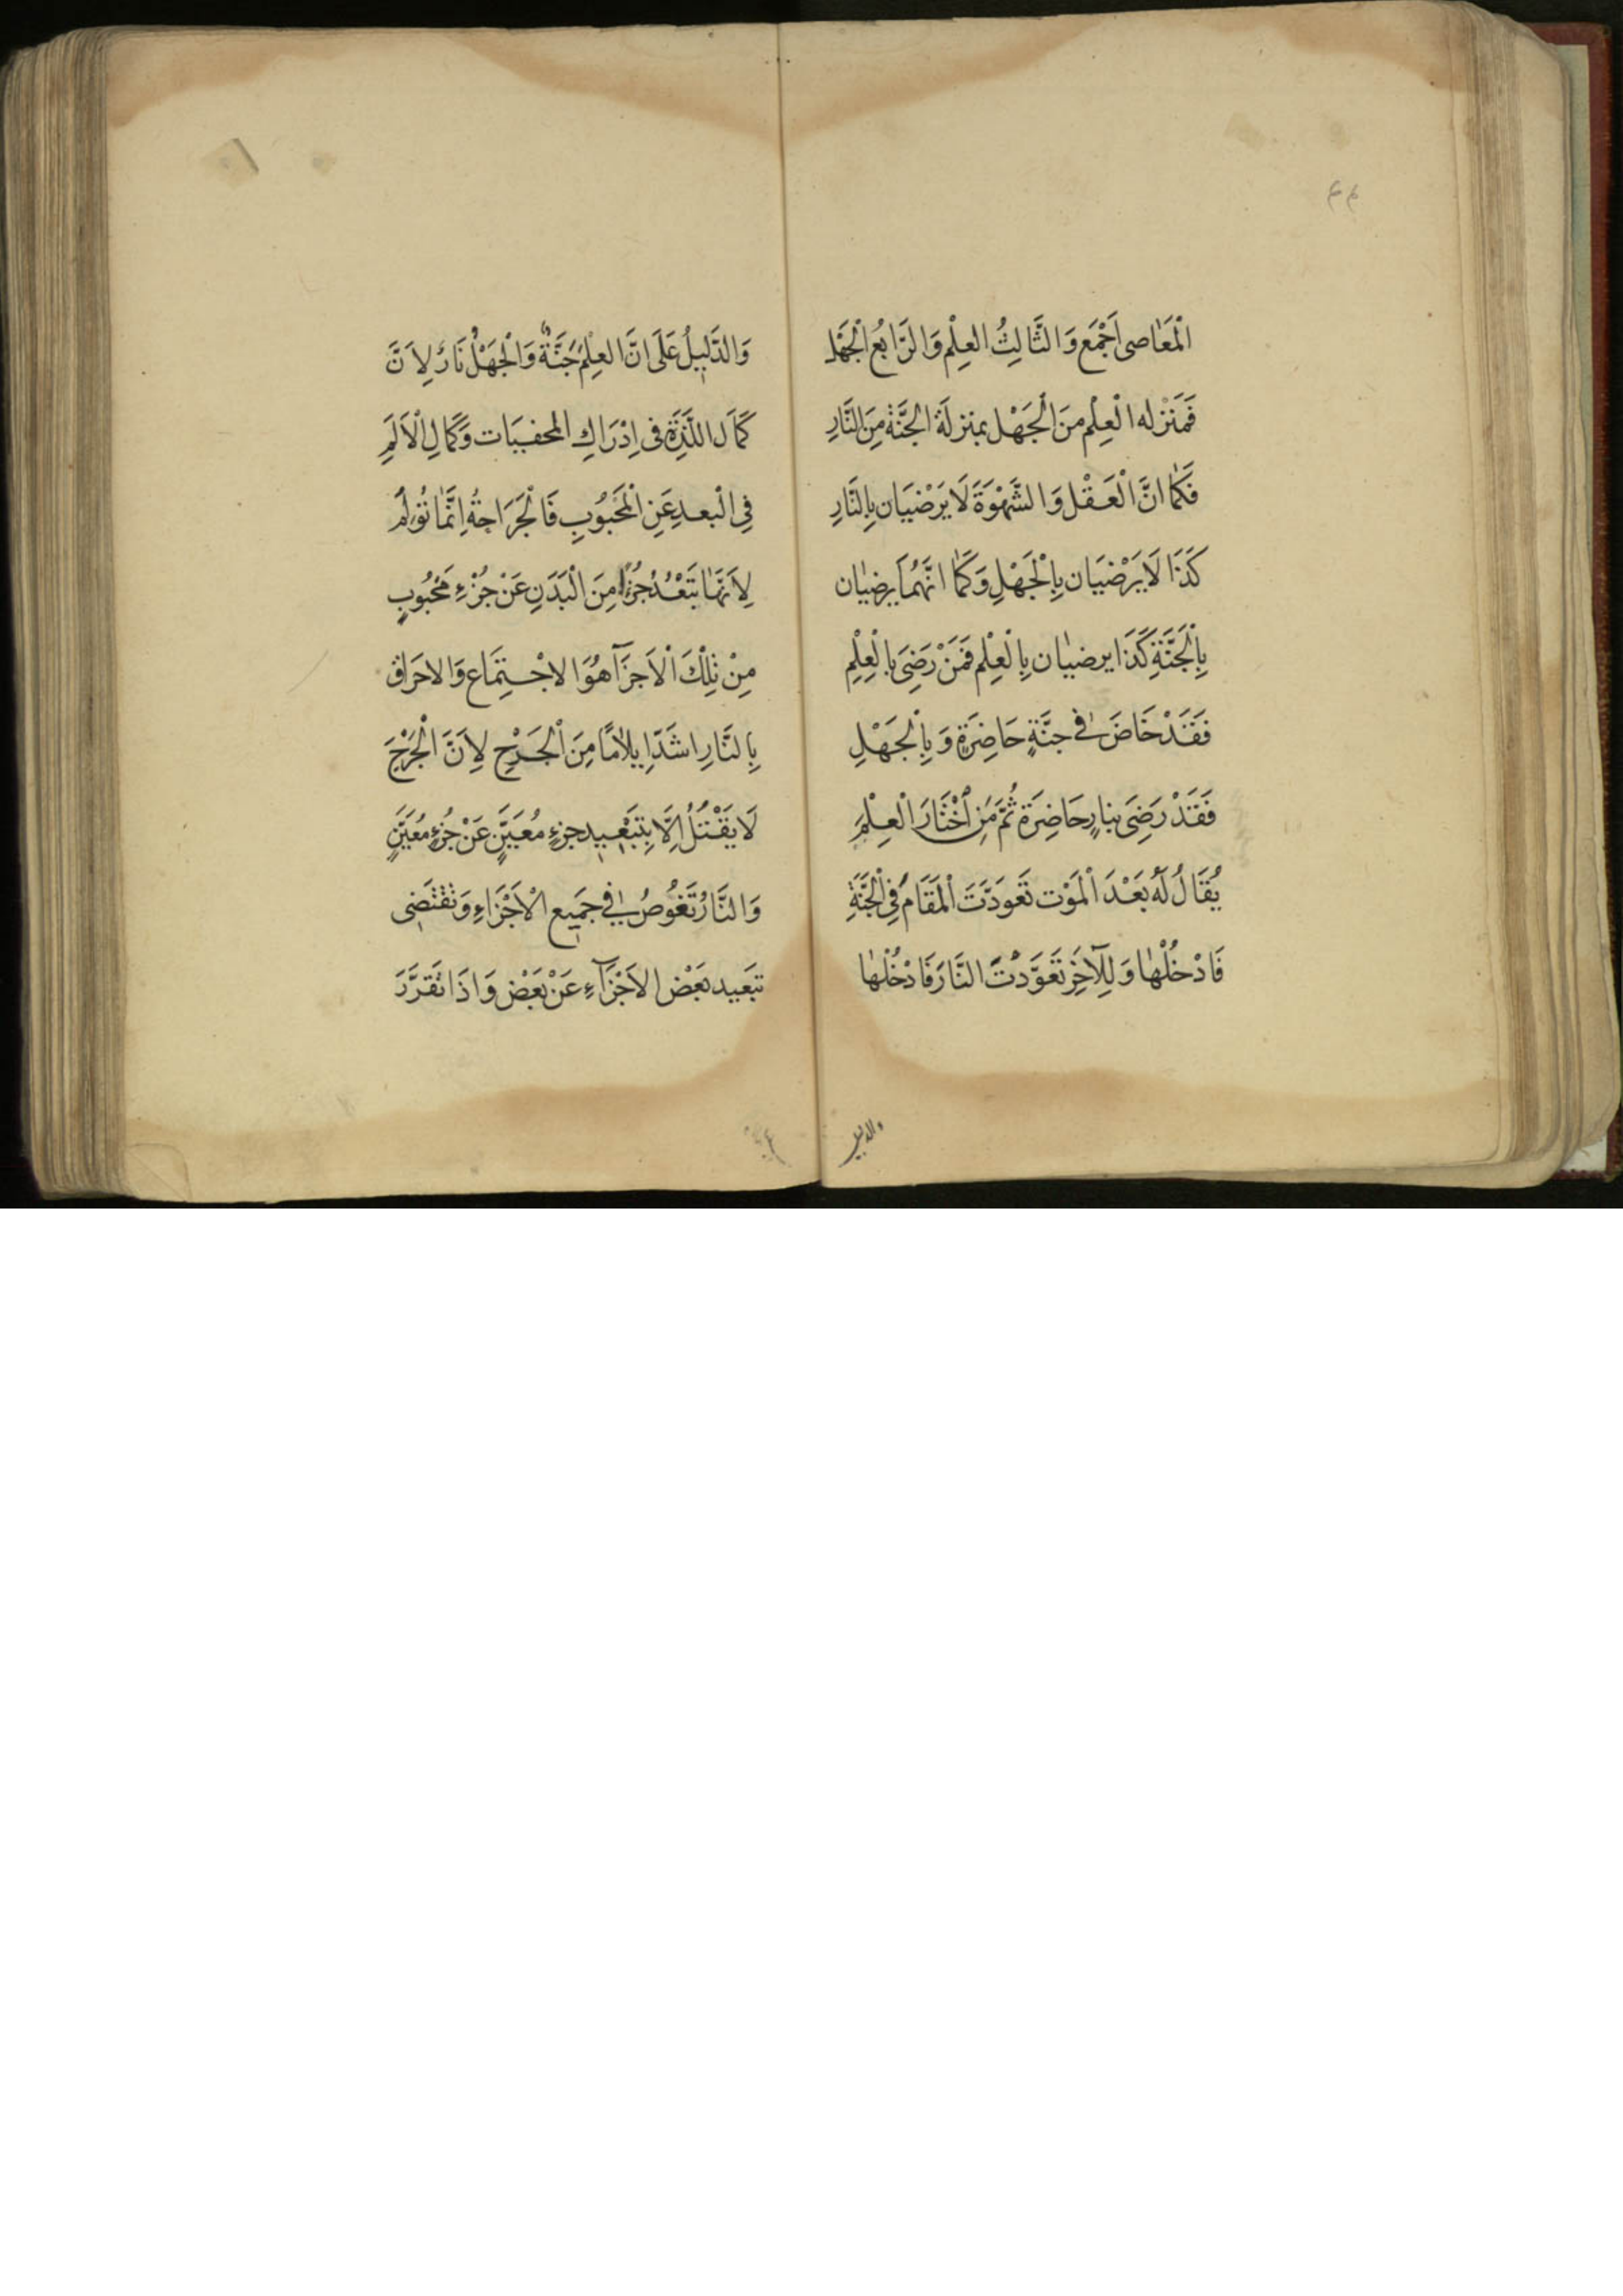 ٤٤
اْلمَعَاصى اَجْمَع وَالثَّالِثُ العِلْم وَالرَّابعُ الْجَهْل
فَمَنْزله الْعِلْم منَ الْجَهْل بمنزلَة الجَنَّة مِنَ النَّارِ
فَكَمَا انَّ الْعَقْل وَالشَّهْوَةَ لَا يَرْضَيَان بِالنَّارِ
كَذَا لَا يَرْضَيَان بِالْجَهْلِ وَكَمَا انَّهُمَا يَرضيَان
بِالْجَنَّةِ كَذَا يرضيَان بِالْعِلْم فَمَنْ رَضِىَ بالْعِلْمِ
فَقَدْ خَاضَ فى جنَّةٍ حَاضِرَةٍ وَبِالْجَهْلِ
فَقَدْ رَضِىَ بنارٍ حَاضِرَة ثُمَّ مَنِ اْخْتَارَ الْعِلْمَ
يُقَالُ لَهُ بَعْدَ الْمَوْت تَعَودَّتَ الْمَقَامَ فِى الْجَنَّةِ
فَادْخُلْهَا وَلِلْآخَرِ تَعَوَّدْتَ النَّارَ فَادْخُلْهَا
والدليل
وَالدَّلِيلُ عَلَى انَّ العِلْمَ جَنَّةٌ وَالْجَهْلُ نَارٌ لِاَنَّ
كَمَال اللَّذَّةِ فى اِدْرَاكِ المَحـبيَات وَكَمَالِ الْاَلَمِ
فِى الْبعدِ عَنِ الْمَحْبُوبِ فَالْجَرَاحةُ اِنَّمَا تُؤلِمُ
لِاَنَّهَا تَبَعْدُ جُزْأً مِنَ الْبَدَنِ عَنْ جُزْءٍ مَحْبُوبٍ
مِنْ تِلْكَ الْاَجزَآ هُوَ الاجْتِمَاع وَالاحَرَاق
بِالنَّارِ اشَدّ اِيلَامًا مِنَ الْجَرْحِ لِاَنَّ الْجَرْحَ
لَا يَقْتُلُ اِلَّا بِتَبْعِيد جزءٍ مُعَيَّنٍ عَنْ جُزءٍ مُعَيَّنٍ
وَالنَّارُ تَغُوصُ فى جَمِيع الْاَجْزَاءِ وَتَقْتَضِى
تبَعيد بَعْض الاَجْزَآءِ عَنْ بَعْض وَاذَا تَقرَّرَ